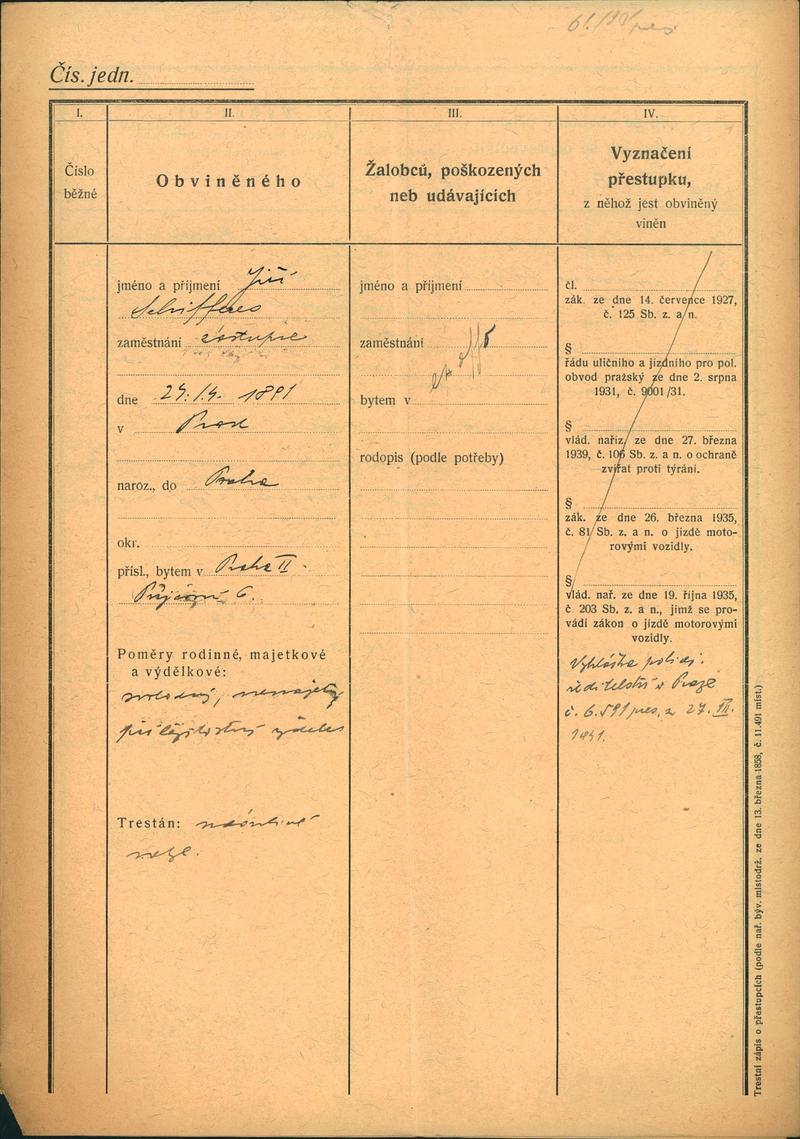 Čís. jedn.
I.
Číslo
běžné
II.
Obviněného
III.
Žalobců, poškozených
neb udávajících
IV.
Vyznačení
přestupku,
z něhož jest obviněný
viněn
jméno a příjmení Jiří
zaměstnání zástupce
dne 29. 1891
v Praze
naroz., do Praha
okr.
přísl., bytem v Praha II
6.
Poměry rodinné, majetkové
a výdělkové:
svobodný, nemajetný
příležitostný výdělek
Trestán:
jméno a příjmení
zaměstnání ex offo
bytem v
rodopis (podle potřeby)
čl.
zák. ze dne 14. července 1927,
č. 125 Sb. z. a n.
§
řádu uličního a jízdního pro pol.
obvod pražský ze dne 2. srpna
1931, č. 9001/31.
§
vlád. naříz. ze dne 27. března
1939, č. 106 Sb. z. a n. o ochraně
zvířat proti týrání.
§
zák. ze dne 26. března 1935,
č. 81 Sb. z. a n. o jízdě moto-
rovými vozidly.
§
vlád. nař. ze dne 19. října 1935,
č. 203 Sb. z. a n., jímž se pro-
vádí zákon o jízdě motorovými
vozidly.
Vyhláška policej.
ředitelství v Praze
č. 6.591 pres. z 27. VII.
1941.
Trestní zápis o přestupcích (podle nař. býv. místodrž. ze dne 13. března 1858, č. 11.491 míst.)